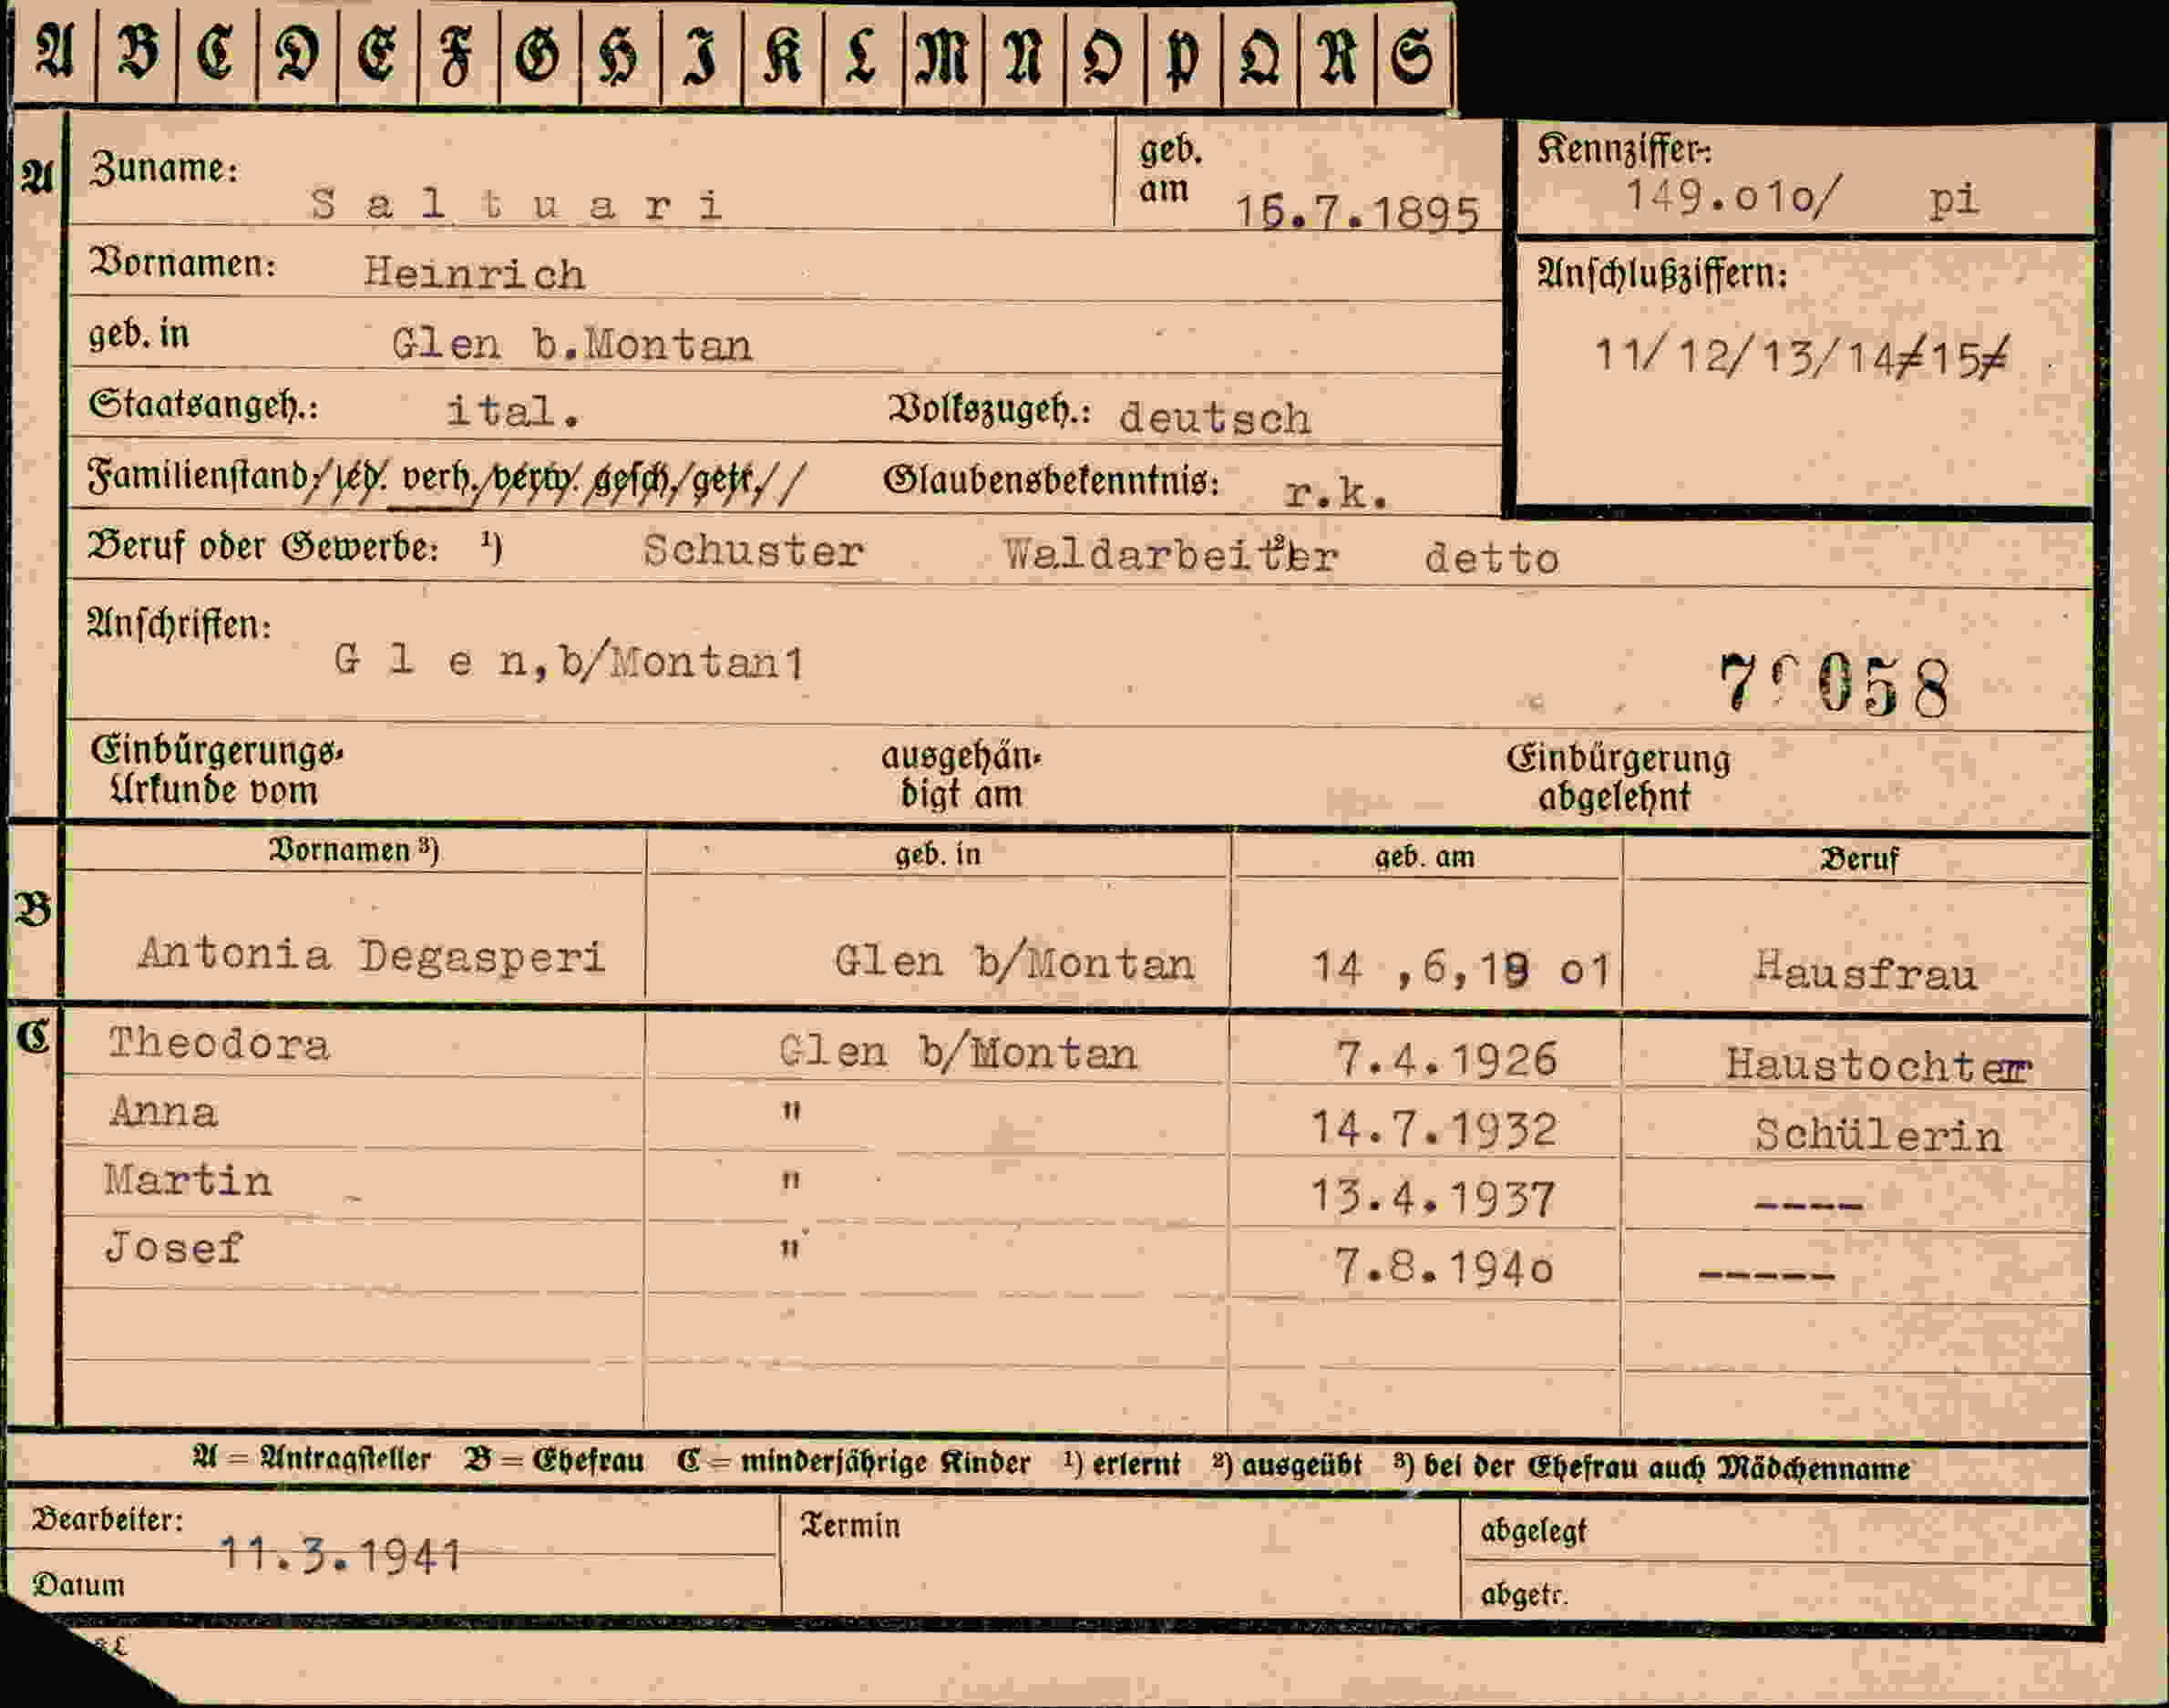 A B C D E F G H I K L M N O P Q R S
A Zuname: Saltuari geb. am 15.7.1895 Kennziffer: 149.010/ pi
Vornamen: Heinrich Anschlußziffern:
geb. in Glen b.Montan 11/12/13/14/15/
Staatsangeh.: ital. Volkszugeh.: deutsch
Familienstand: led. verh. verw. gesch. getr. Glaubensbekenntnis: r.k.
Beruf oder Gewerbe: ¹) Schuster Waldarbeiter detto
Anschriften:
Glen,b/Montan1
Einbürgerungs- ausgehän- Einbürgerung
Urkunde vom digt am abgelehnt
Vornamen ³) geb. in geb. am Beruf
B
Antonia Degasperi Glen b/Montan 14 ,6,19 o1 Hausfrau
C Theodora Glen b/Montan 7.4.1926 Haustochter
Anna " 14.7.1932 Schülerin
Martin " 13.4.1937 ----
Josef " 7.8.194o -----
A = Antragsteller B = Ehefrau C = minderjährige Kinder ¹) erlernt ²) ausgeübt ³) bei der Ehefrau auch Mädchenname
Bearbeiter: Termin abgelegt
11.3.1941
Datum abgetr.